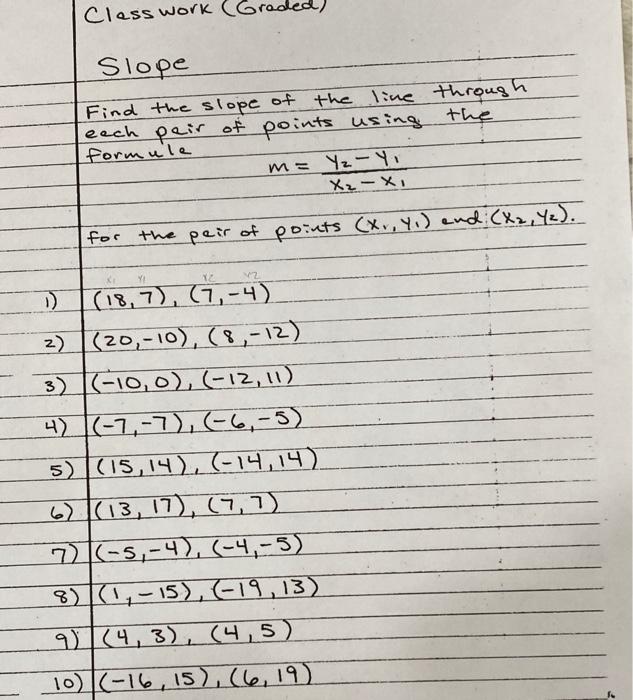 Classwork (Graded)
Slope
Find the slope of the line through
each pair of points using the
formula
m = Y₂ - Y₁
X₂ - X₁
for the pair of points (X₁, Y₁) and (X₂, Y₂).
X₁ Y₁ Y2 Y2
1) (18, 7), (7, -4)
2) (20, -10), (8, -12)
3) (-10, 0), (-12, 11)
4) (-7, -7), (-6, -5)
5) (15, 14), (-14, 14)
6) (13, 17), (7, 7)
7) (-5, -4), (-4, -5)
8) (1, -15), (-19, 13)
9) (4, 3), (4, 5)
10) (-16, 15), (6, 19)